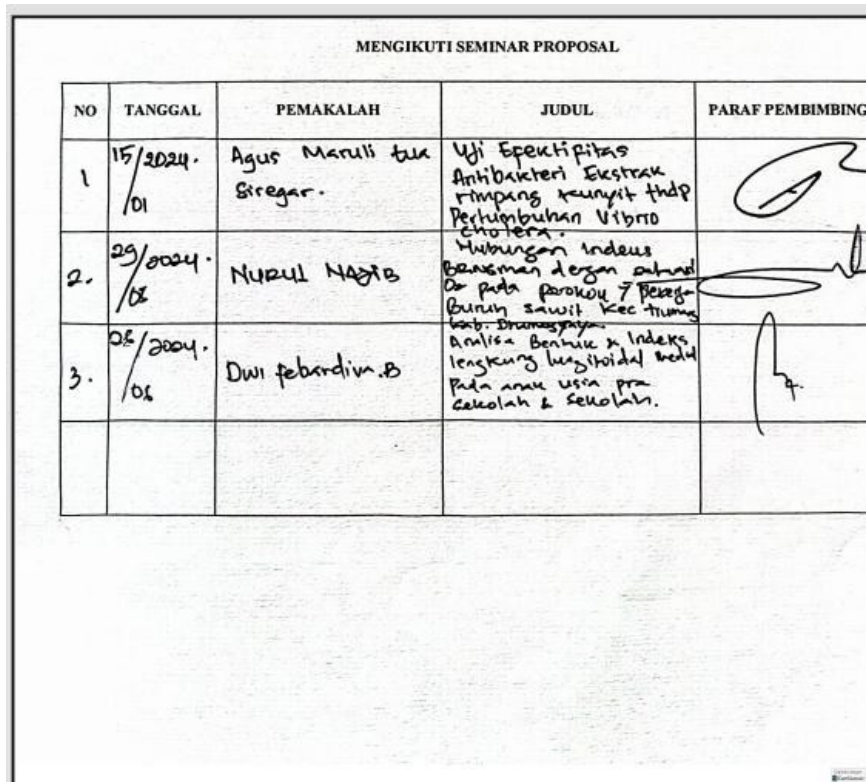 MENGIKUTI SEMINAR PROPOSAL
NO TANGGAL PEMAKALAH JUDUL PARAF PEMBIMBING
1 15/2024. /01 Agus Maruli tua Siregar.
Uji Efektifitas
Antibakteri Ekstrak
rimpang kunyit thdp
Pertumbuhan Vibrio
cholera.
2. 29/2024. /08 NURUL NAJIB
Hubungan Indeks
dengan
O2 pada perokok Pekerja
Buruh sawit Kec
kab.
3. /2024. Dwi febardiva.B
Analisa Bentuk & Indeks
lengkung
Pada anak usia pra
sekolah & sekolah.